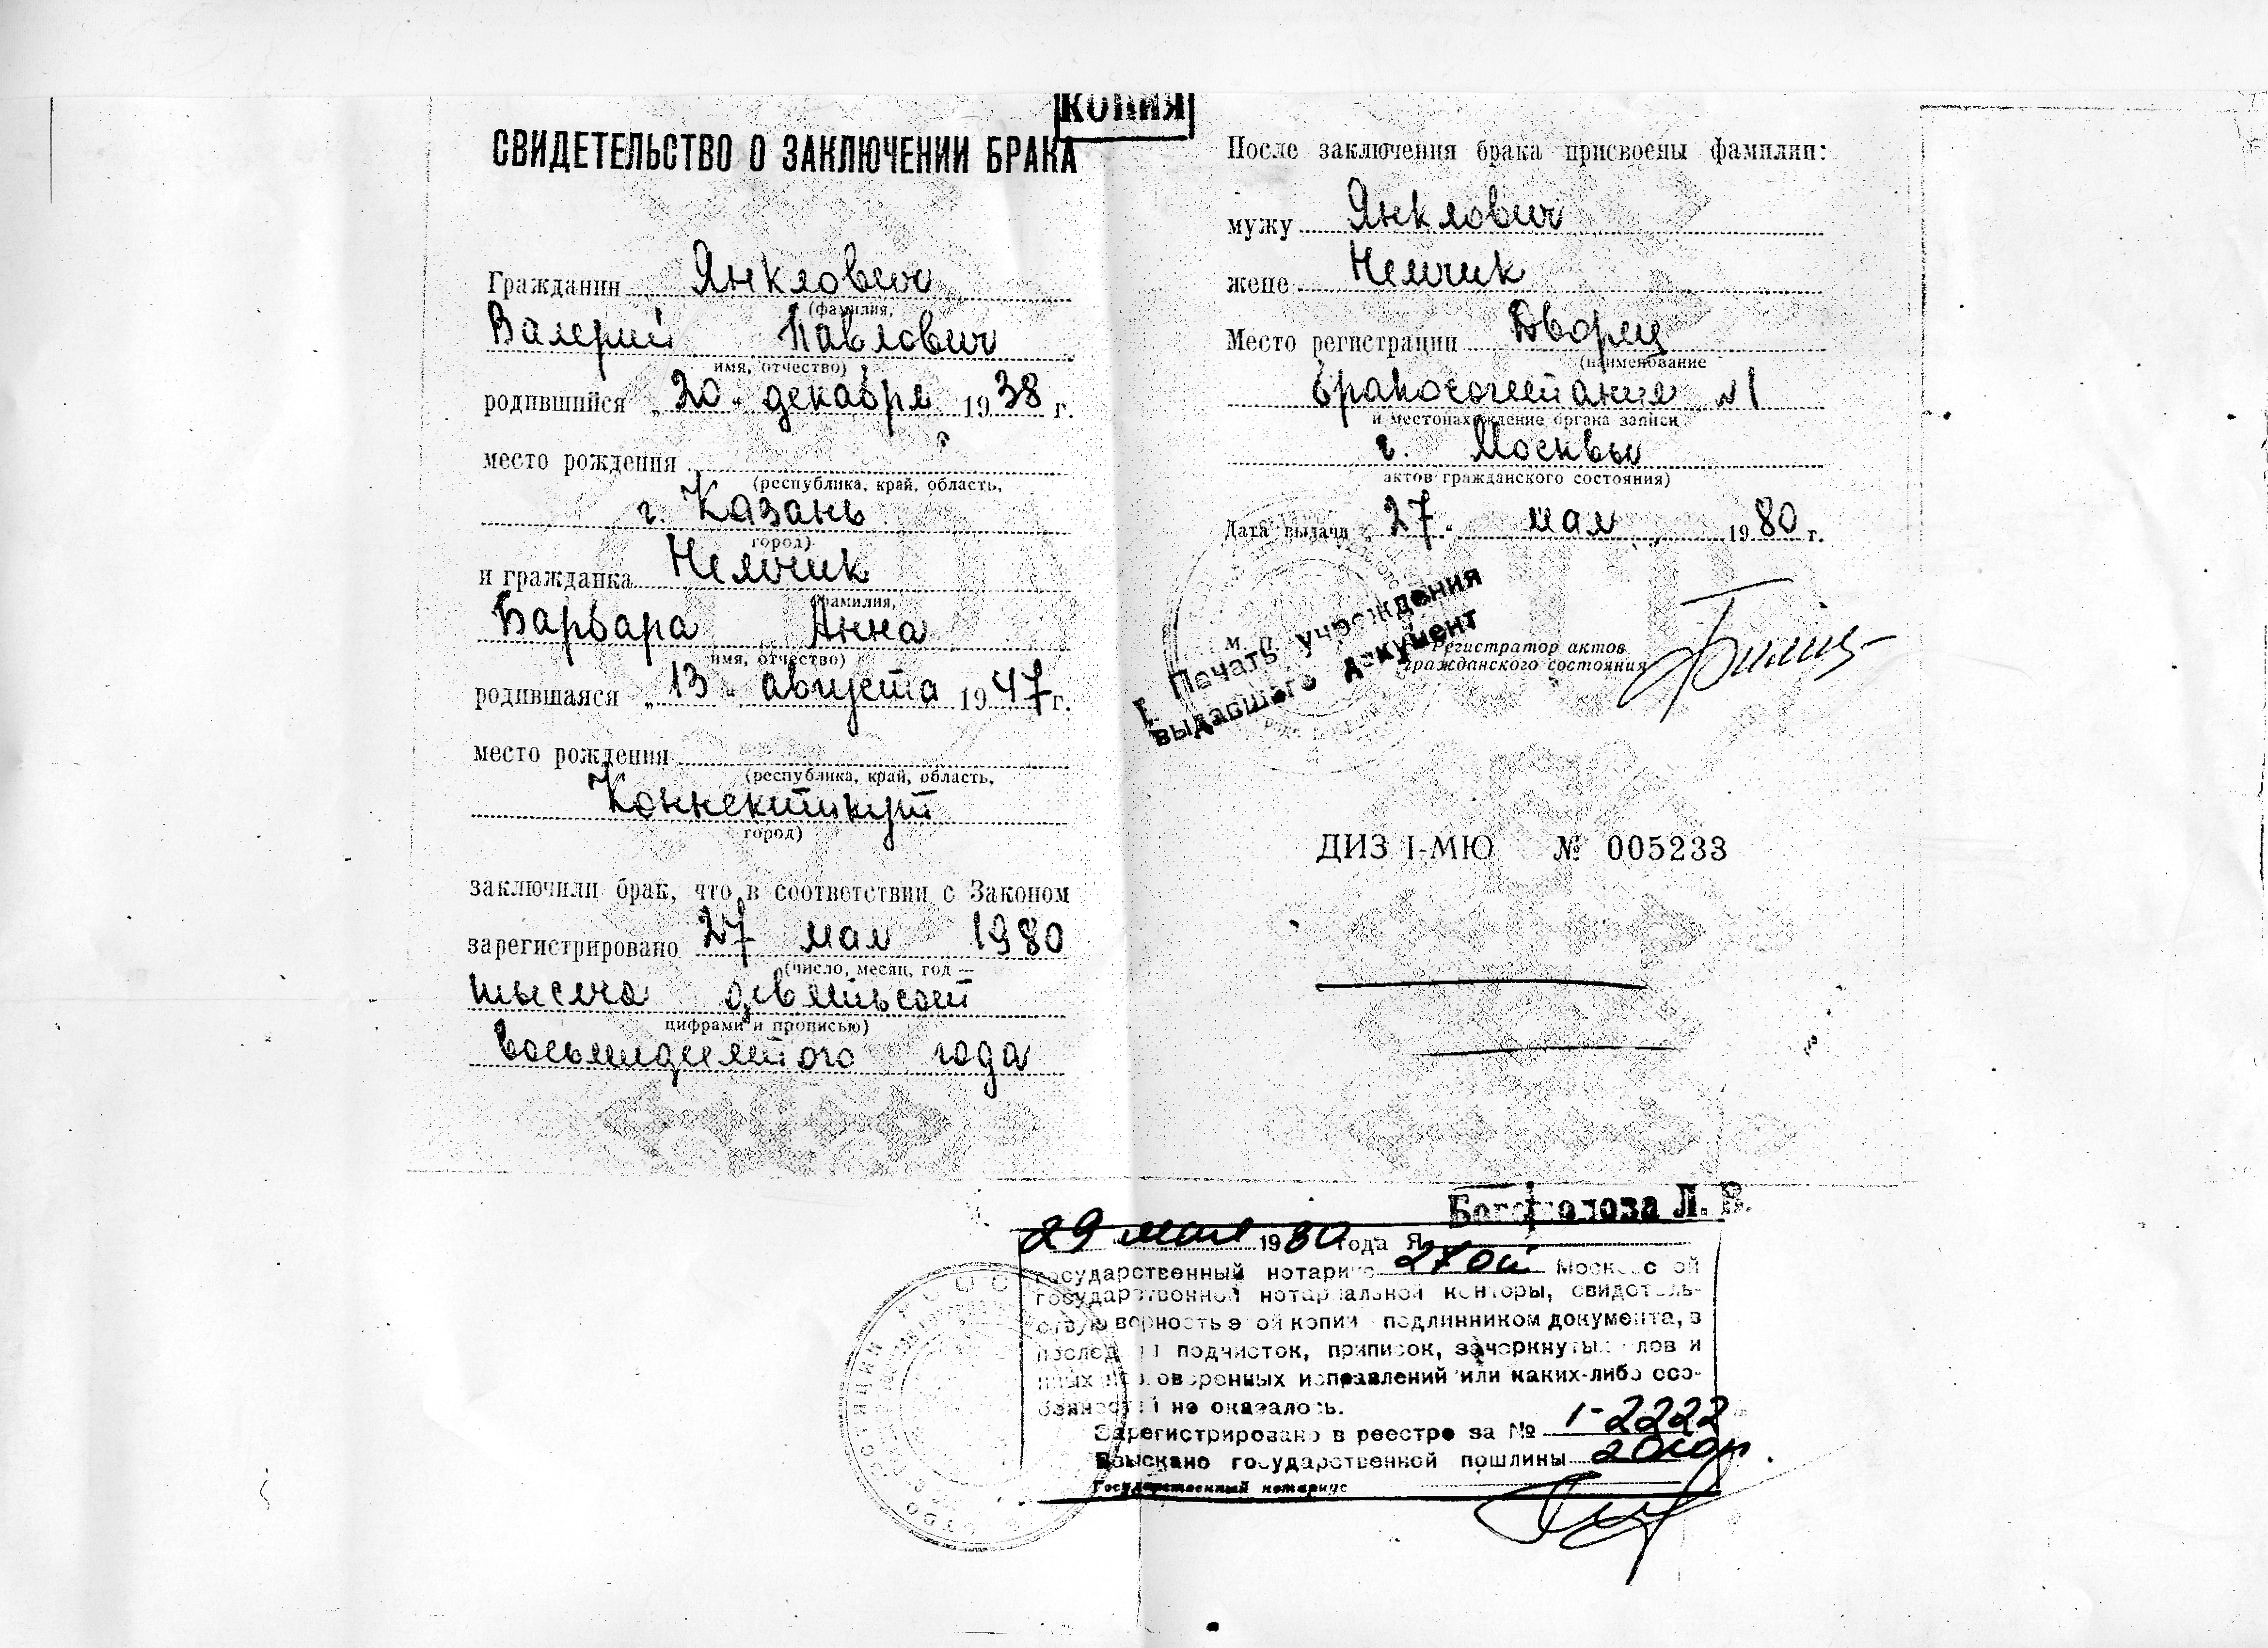 КОПИЯ
СВИДЕТЕЛЬСТВО О ЗАКЛЮЧЕНИИ БРАКА
Гражданин Янклович
(фамилия,
Валерий Павлович
имя, отчество)
родившийся „20" декабря 1938 г.
место рождения
(республика, край, область,
г. Казань
город)
и гражданка Немчик
фамилия,
Барбара Анна
имя, отчество)
родившаяся „13" августа 1947 г.
место рождения
(республика, край, область,
Коннектикут
город)
заключили брак, что в соответствии с Законом
зарегистрировано 27 мая 1980
(число, месяц, год —
тысяча девятьсот
цифрами и прописью)
восьмидесятого года
После заключения брака присвоены фамилии:
мужу Янклович
жене Немчик
Место регистрации Дворец
(наименование
бракосочетания №1
и местонахождение органа записи
г. Москвы
актов гражданского состояния)
Дата выдачи „27" мая 1980 г.
М. П.
Печать учреждения
выдавшего документ
Регистратор актов
гражданского состояния
ДИЗ I-МЮ № 005233
Л. В.
29 мая 1980 года Я,
государственный нотариус 27ой Московской
государственной нотариальной конторы, свидетель-
ствую верность этой копии подлинником документа, в
последнем подчисток, приписок, зачеркнутых слов и
иных неоговоренных исправлений или каких-либо осо-
бенностей не оказалось.
Зарегистрировано в реестре за № 1-2222
Взыскано государственной пошлины
Государственный нотариус